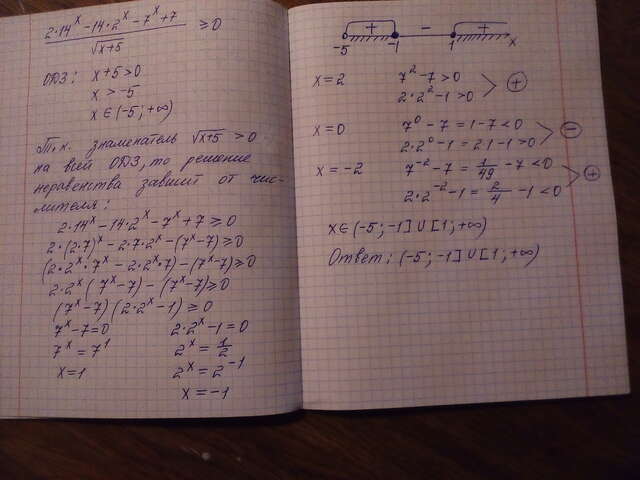 2·14ˣ-14·2ˣ-7ˣ+7 / √(x+5) ≥ 0
ОДЗ: x+5>0
x > -5
x ∈ (-5; +∞)
Т.к. знаменатель √(x+5) > 0
на всей ОДЗ, то решение
неравенства зависит от чис-
лителя:
2·14ˣ-14·2ˣ-7ˣ+7 ≥ 0
2·(2·7)ˣ-2·7·2ˣ-(7ˣ-7) ≥ 0
(2·2ˣ·7ˣ-2·2ˣ·7)-(7ˣ-7) ≥ 0
2·2ˣ(7ˣ-7)-(7ˣ-7) ≥ 0
(7ˣ-7)(2·2ˣ-1) ≥ 0
7ˣ-7=0 2·2ˣ-1=0
7ˣ=7¹ 2ˣ=1/2
x=1 2ˣ=2⁻¹
x=-1
+ - +
-5 -1 1 x
x=2 7²-7>0
2·2²-1>0 +
x=0 7⁰-7=1-7<0
2·2⁰-1=2·1-1>0 -
x=-2 7⁻²-7=1/49-7<0
2·2⁻²-1=2/4-1<0 +
x∈(-5;-1]∪[1;+∞)
Ответ: (-5;-1]∪[1;+∞)